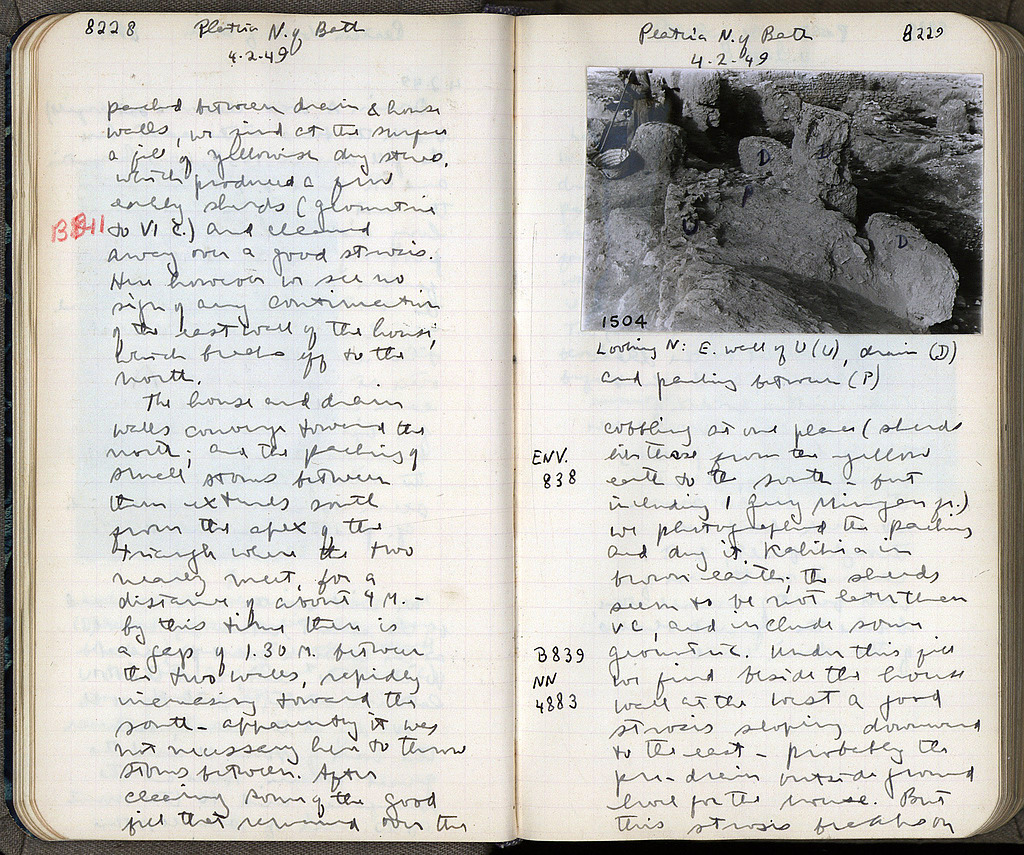 8228 Plateia N. of Bath
4-2-49
packed between drain & house
walls, we find at the surface
a fill of yellowish dry stereo,
which produced a few
early sherds (geometric
B811 to VI c.) and cleaned
away over a good strosis.
Here however we see no
sign of any continuation
of the east wall of the house,
which breaks off to the
north.
The house and drain
walls converge toward the
north; and the packing of
small stones between
them extends south
from the apex of the
triangle where the two
nearly meet, for a
distance of about 4 M. -
by this time there is
a gap of 1.30 M. between
the two walls, rapidly
increasing toward the
south - apparently it was
not necessary here to throw
stones between. After
clearing some of the good
fill that remained over the
Plateia N. of Bath 8229
4-2-49
D
D
P
U
D
1504
Looking N: E. wall of U (U), drain (D)
and packing between (P)
cobbling at one place (sherds
ENV. 838
like those from the yellow
earth to the south - but
including 1 grey Minyan fr.)
we photographed the packing
and dug it. Kalithia in
brown earth; the sherds
seem to be not later than
V C, and include some
B839
NN
4883
geometric. Under this fill
we find beside the house
wall at the west a good
strosis sloping downward
to the east - probably the
pre-drain outside ground
level for the house. But
this strosis breaks on